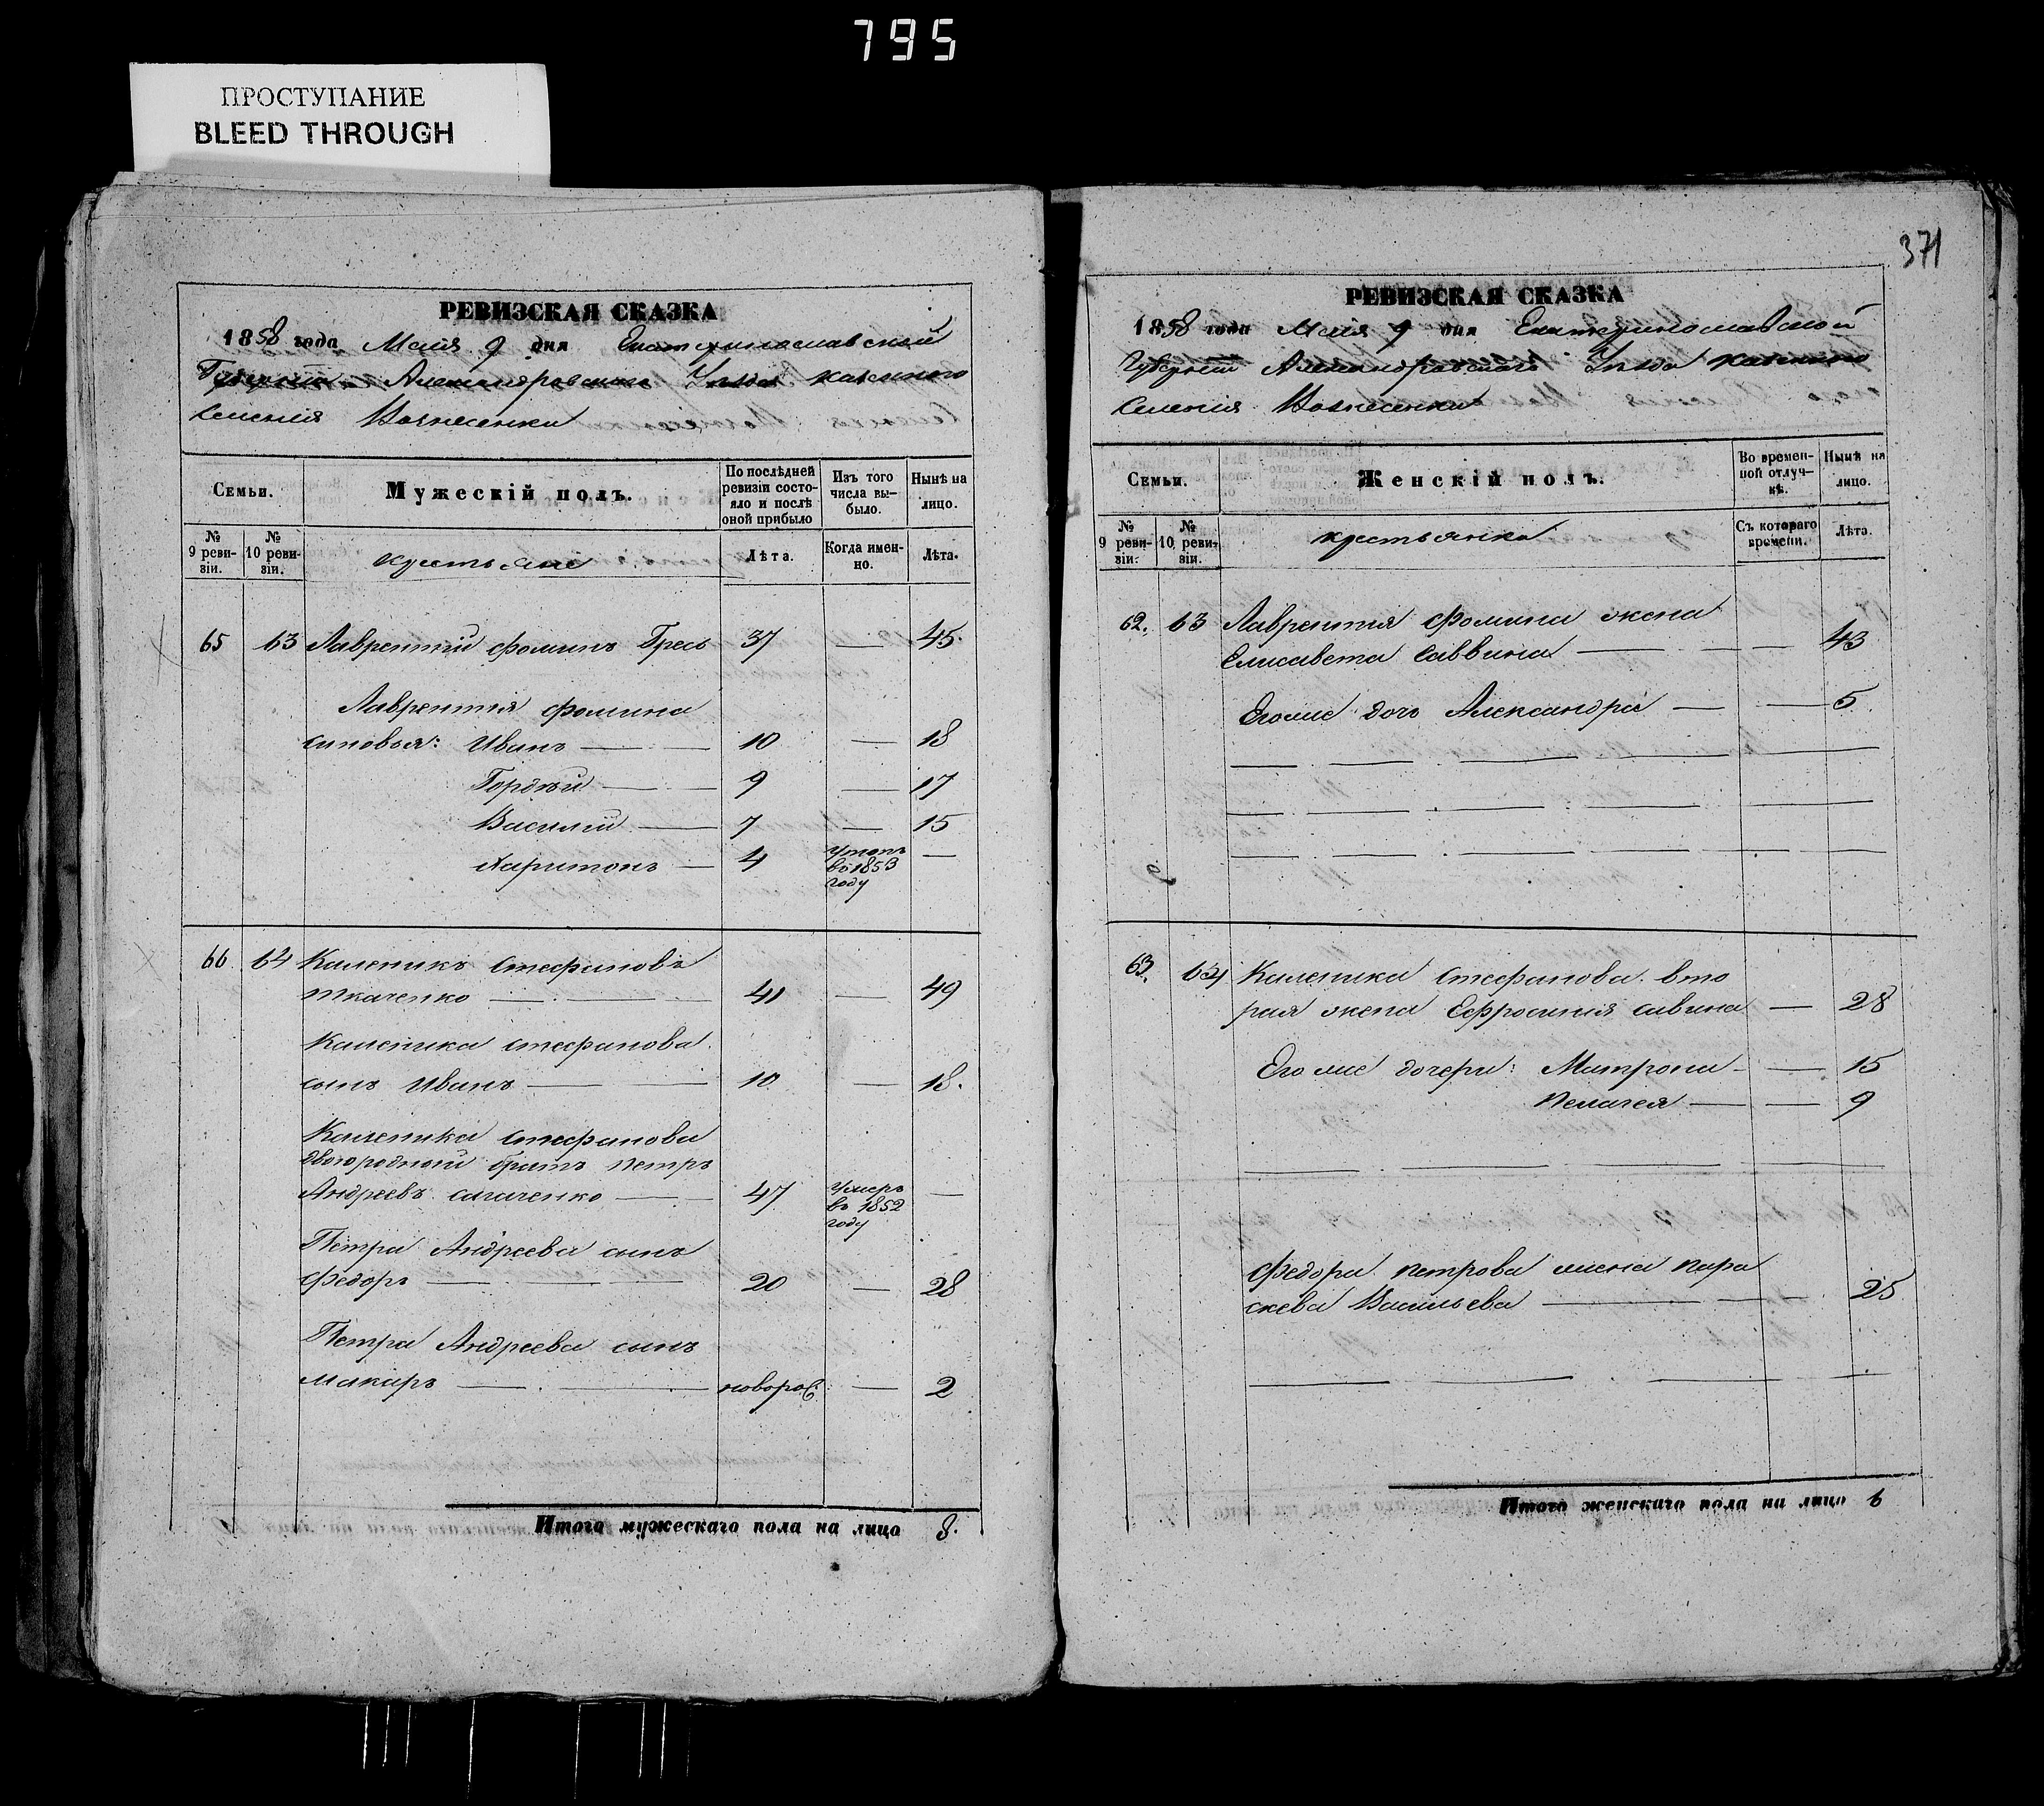 795
ПРОСТУПАНИЕ
BLEED THROUGH
371
РЕВИЗСКАЯ СКАЗКА
1858 года Мая 9 дня Екатеринославской
Губерніи Александровскаго Уѣзда казеннаго
Селенія Вознесенки
Семьи.
Мужескій полъ.
По послѣдней ревизіи состо-
яло и послѣ
оной прибыло
Изъ того
числа вы-
было.
Нынѣ на
лицо.
№
9 реви-
зіи.
№
10 реви-
зіи.
крестьяне
Лѣта.
Когда имен-
но.
Лѣта.
65 63 Лаврентій Фоминъ 37 — 45.
Лаврентія Фомина
синовья: Иванъ — 10 — 18
Гордѣй — 9 — 17
Василій — 7 — 15
Харитонъ — 4 —
въ 1853
году
66 64 Каленикъ Стефановъ
Ткаченко — 41 — 49
Каленика Стефанова
сынъ Иванъ — 10 — 18.
Каленика Стефанова
двоюродный братъ Петръ
Андреевъ — 47 умеръ —
въ 1852
году
Петра Андреева сынъ
Федоръ — 20 — 28
Петра Андреева сынъ
Макаръ — новорож: — 2
Итого мужескаго пола на лицо 8.
РЕВИЗСКАЯ СКАЗКА
1858 года Мая 9 дня Екатеринославской
Губерніи Александровскаго Уѣзда казеннаго
Селенія Вознесенки
Семьи.
Женскій полъ.
Во времен-
ной отлуч-
кѣ.
Нынѣ на
лицо.
№
9 реви-
зіи.
№
10 реви-
зіи.
крестьянки
Съ котораго
времени.
Лѣта.
62. 63 Лаврентія Фомина жена
Елисавета Саввина — — 43
Его же дочь Александра — — 5
63. 64 Каленика Стефанова вто
рая жена Ефросинія Савина — 28
Его же дочери: Матрона — — 15
Пелагея — — 9
Федора Петрова жена Пара
скева Васильева — — 25
Итого женскаго пола на лицо 6